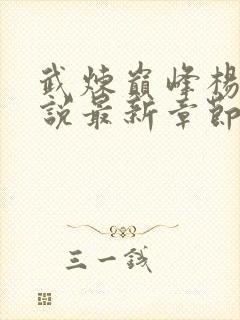 武煉巔峰楊
說最新章節
三一錢